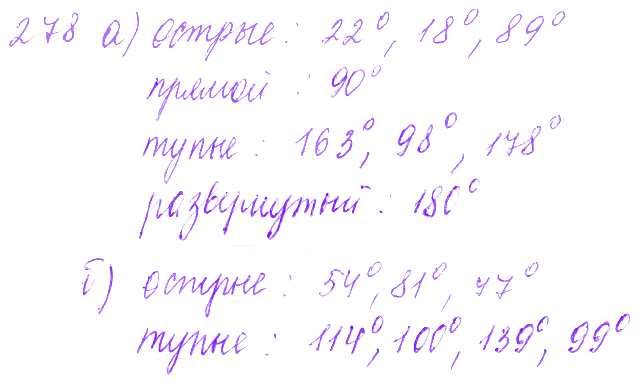 278 а) острые: 22°, 18°, 89°
прямой : 90°
тупые : 163°, 98°, 178°
развернутый : 180°
б) острые : 54°, 81°, 77°
тупые : 114°, 100°, 139°, 99°